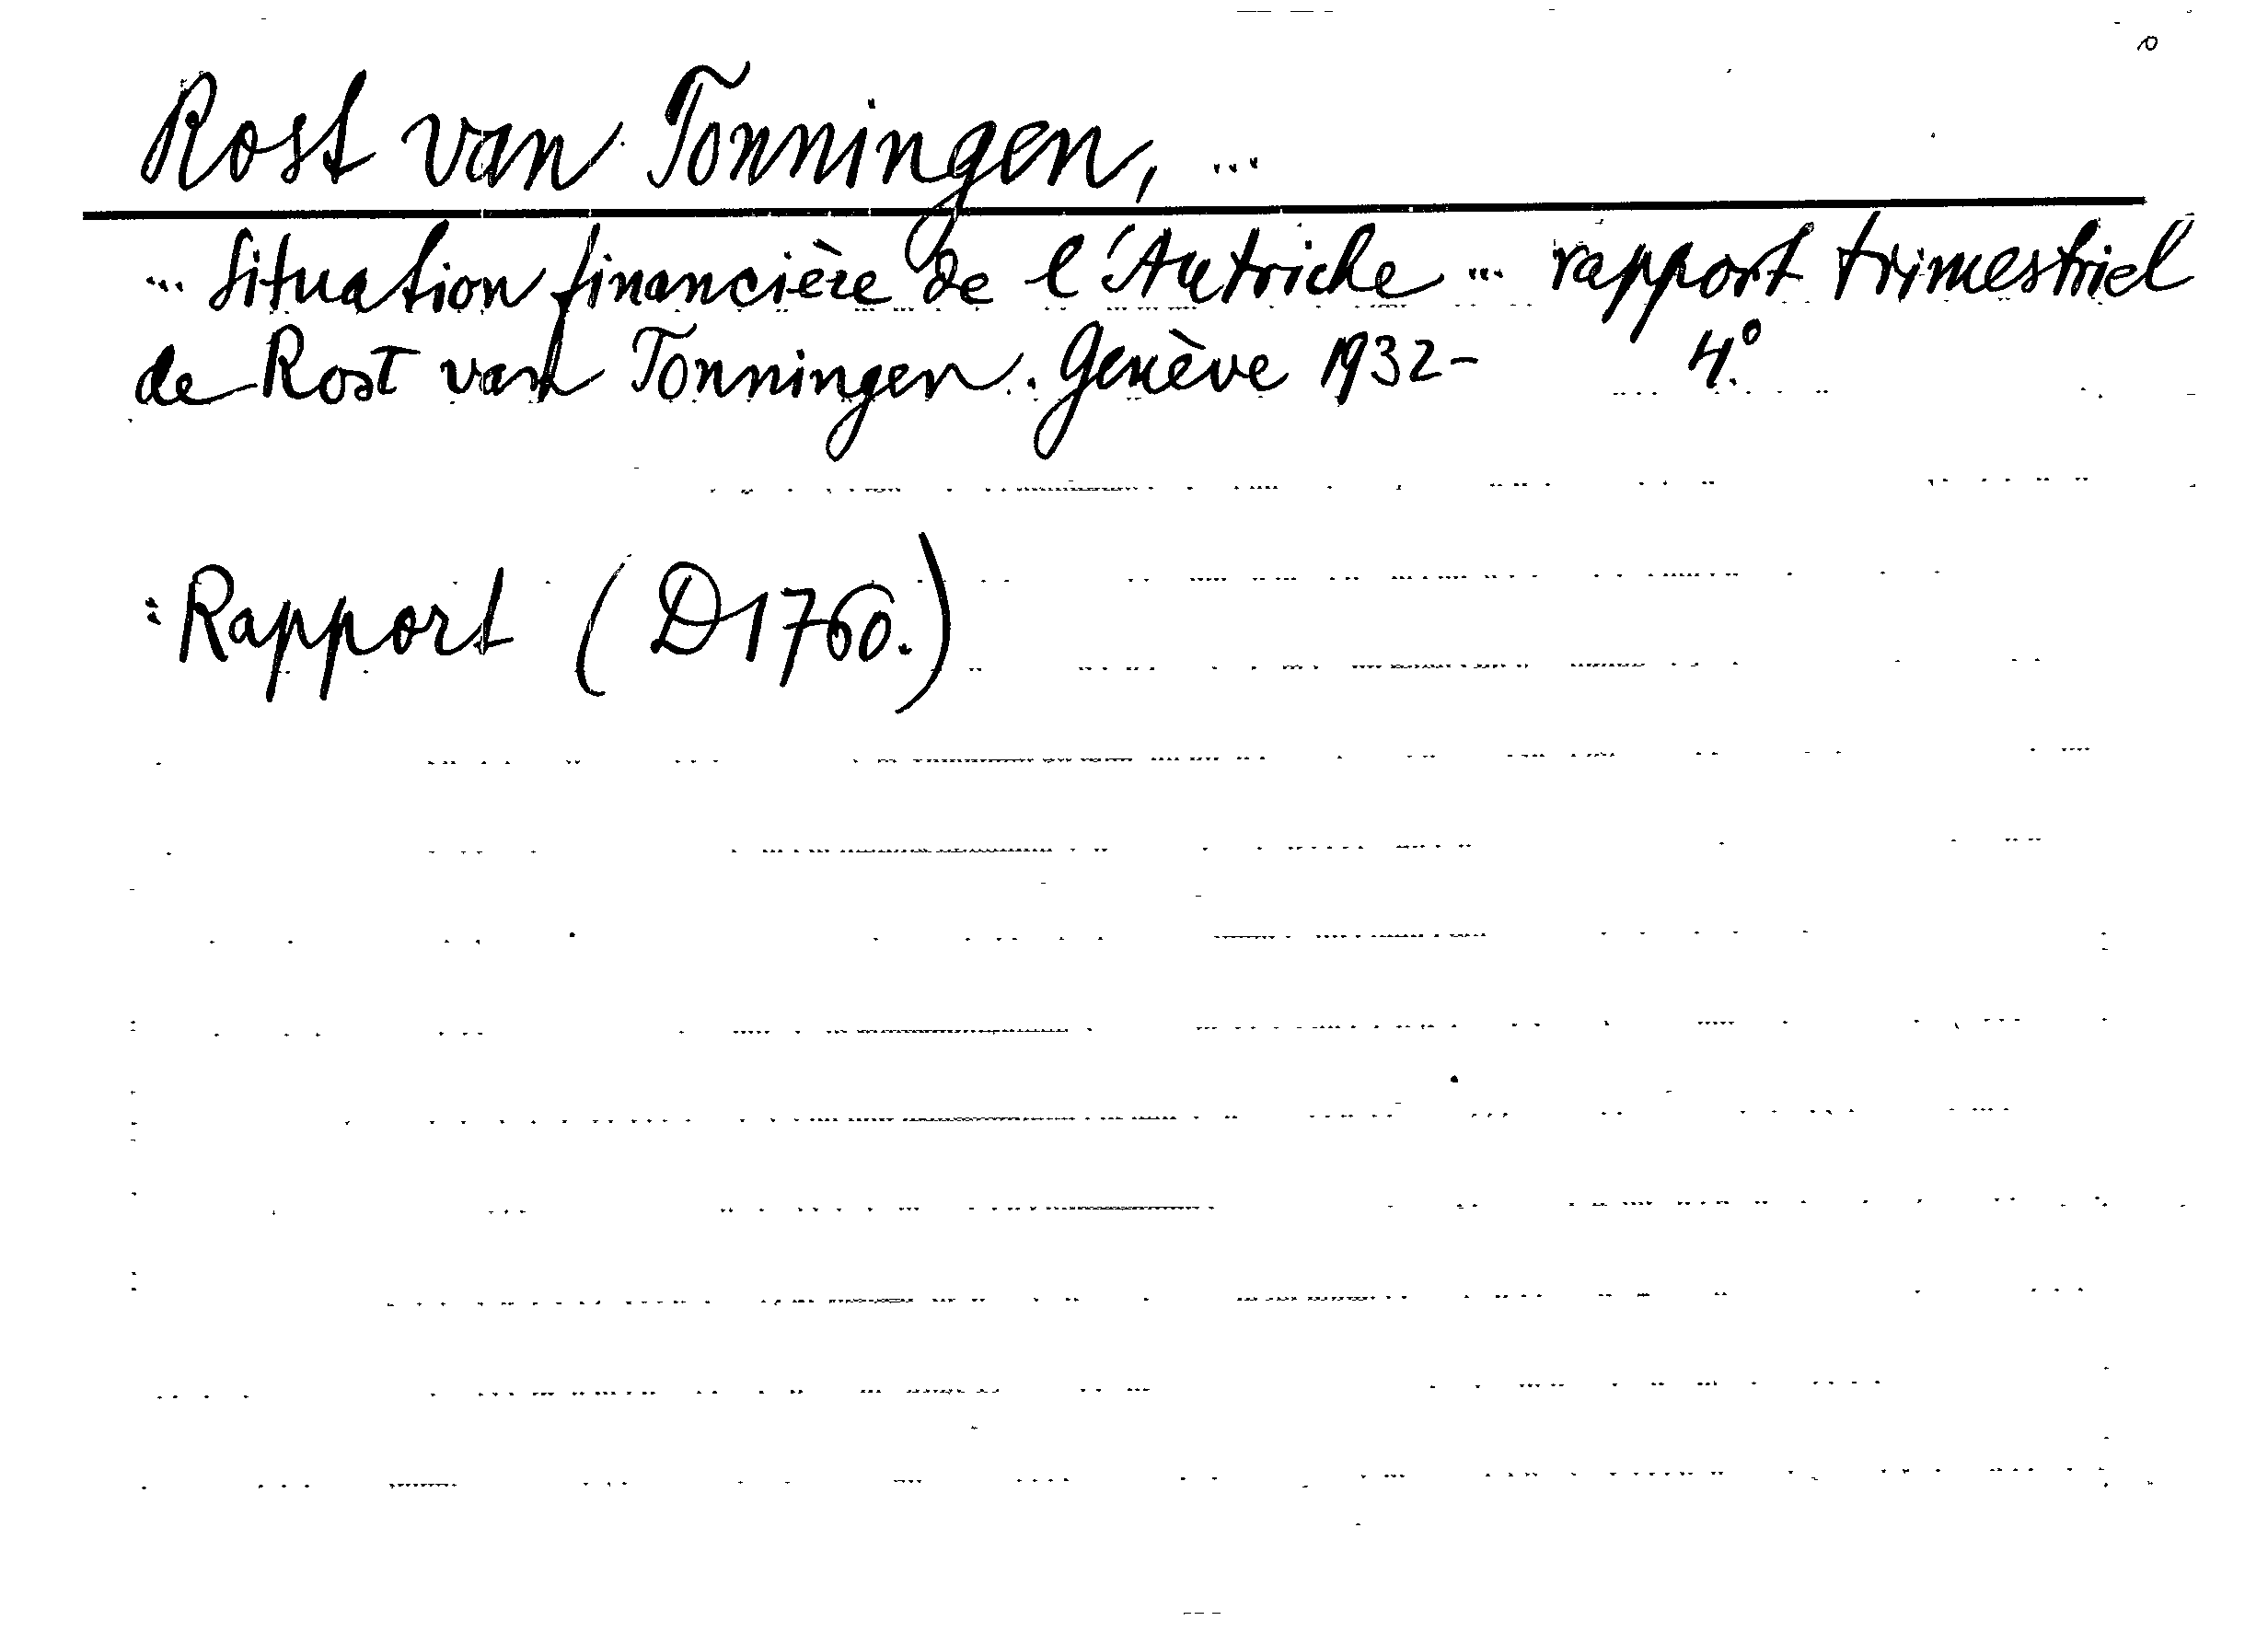 Rost van Tonningen, ...
... Situation financière de l'Autriche ... rapport trimestriel
de Rost van Tonningen. Genève 1932- 4.°
: Rapport (D1760.)